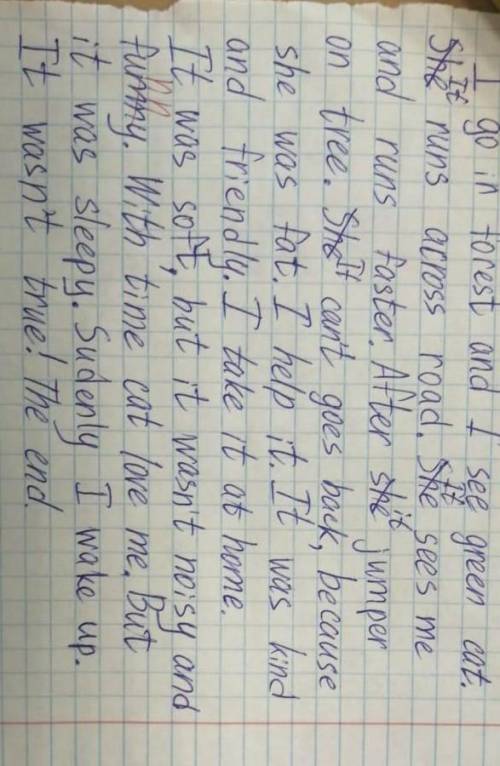 I go in forest and I see green cat.
It runs across road. It sees me
and runs faster. After it jumper
on tree. It can't goes back, because
she was fat. I help it. It was kind
and friendly. I take it at home.
It was soft, but it wasn't noisy and
funny. With time cat love me. But
it was sleepy. Sudenly I wake up.
It wasn't true! The end.